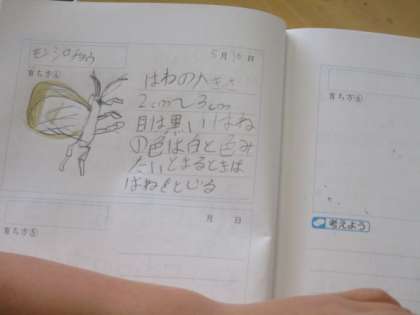 モンシロチョウ
5月10日
育ち方④
はねの大きさ
2cm〜3cm
目は黒いはね
の色は白と色み
たいとまるときは
はねをとじる
月 日
育ち方⑤
育ち方⑥
考えよう